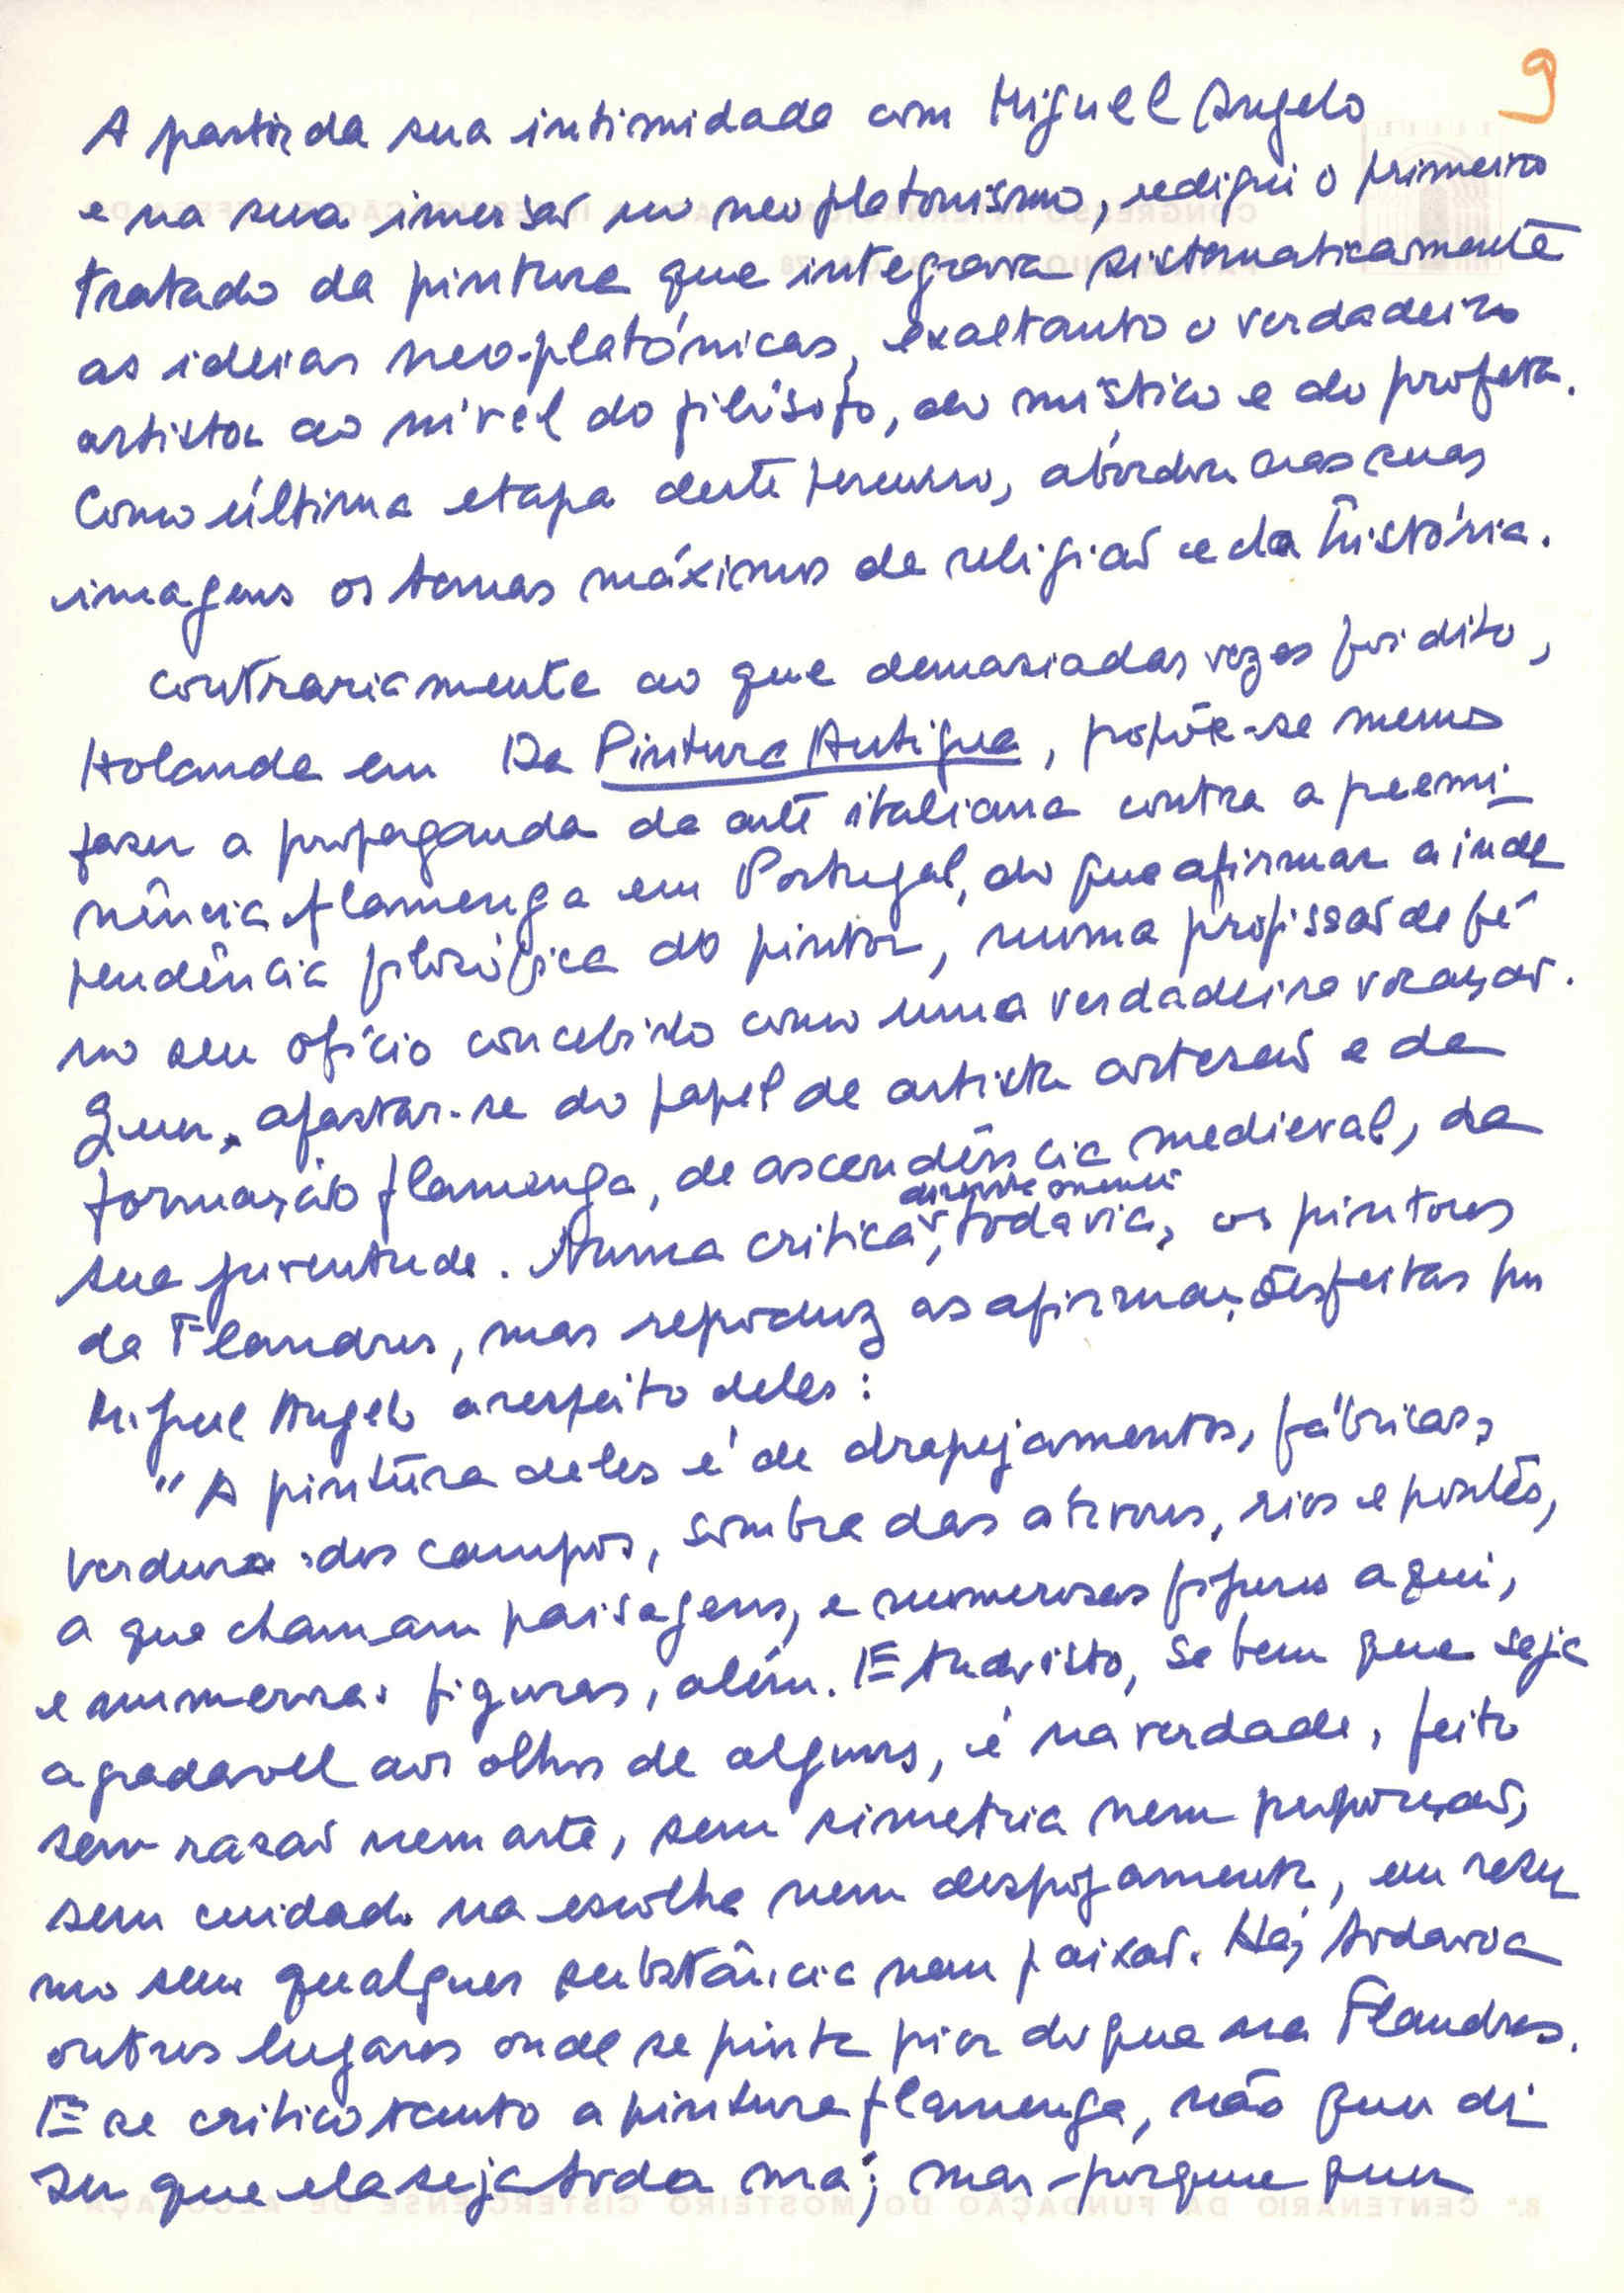 9
A partir da sua intimidade com Miguel Angelo
e na sua imersão no neoplatonismo, redigiu o primeiro
tratado da pintura que integrava sistematicamente
as ideias neo-platónicas, exaltanto o verdadeiro
artista ao nível do filósofo, do místico e do profeta.
Como última etapa deste percurso, aborda nas suas
imagens os temas máximos da religião e da história.
Contrariamente ao que demasiadas vezes foi dito,
Holanda em Da Pintura Antigua, propõe-se menos
fazer a propaganda da arte italiana contra a preemi-
nência flamenga em Portugal, do que afirmar a inde
pendência filosófica do pintor, numa profissão de fé
no seu ofício concebido como uma verdadeira vocação.
Quer, afastar-se do papel de artista artesão e da
formação flamenga, de ascendência medieval, da
directamente
sua juventude. Nunca critica, todavia, os pintores
da Flandres, mas reproduz as afirmações feitas por
Miguel Angelo a respeito deles:
"A pintura deles é de drapejamentos, fábricas,
verdura dos campos, sombra das árvores, rios e pontes,
a que chamam paisagens, e numerosas figuras aqui,
e numerosas figuras, além. E tudo isto, se bem que seja
agradavel aos olhos de alguns, é na verdade, feito
sem razão nem arte, sem simetria nem proporção,
sem cuidado na escolha nem despojamento, em resu
mo sem qualquer substância nem paixão. Há, todavia
outros lugares onde se pinta pior do que na Flandres.
E se critico tanto a pintura flamenga, não quer di
zer que ela seja toda má; mas porque quer
8.º CENTENÁRIO DA FUNDAÇÃO DO MOSTEIRO CISTERCIENSE DE ALCOBAÇA